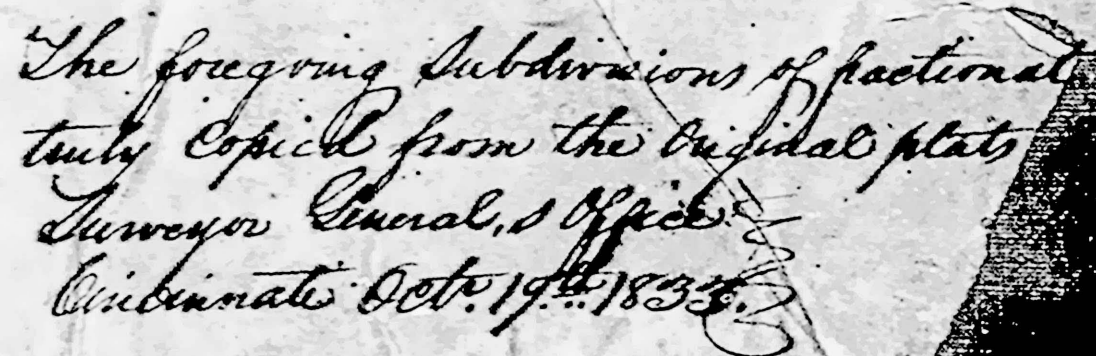 The foregoing Subdivisions of fractional
truly Copied from the Original plats
Surveyor General,s Office
Cincinnati Oct. 19th 1833.